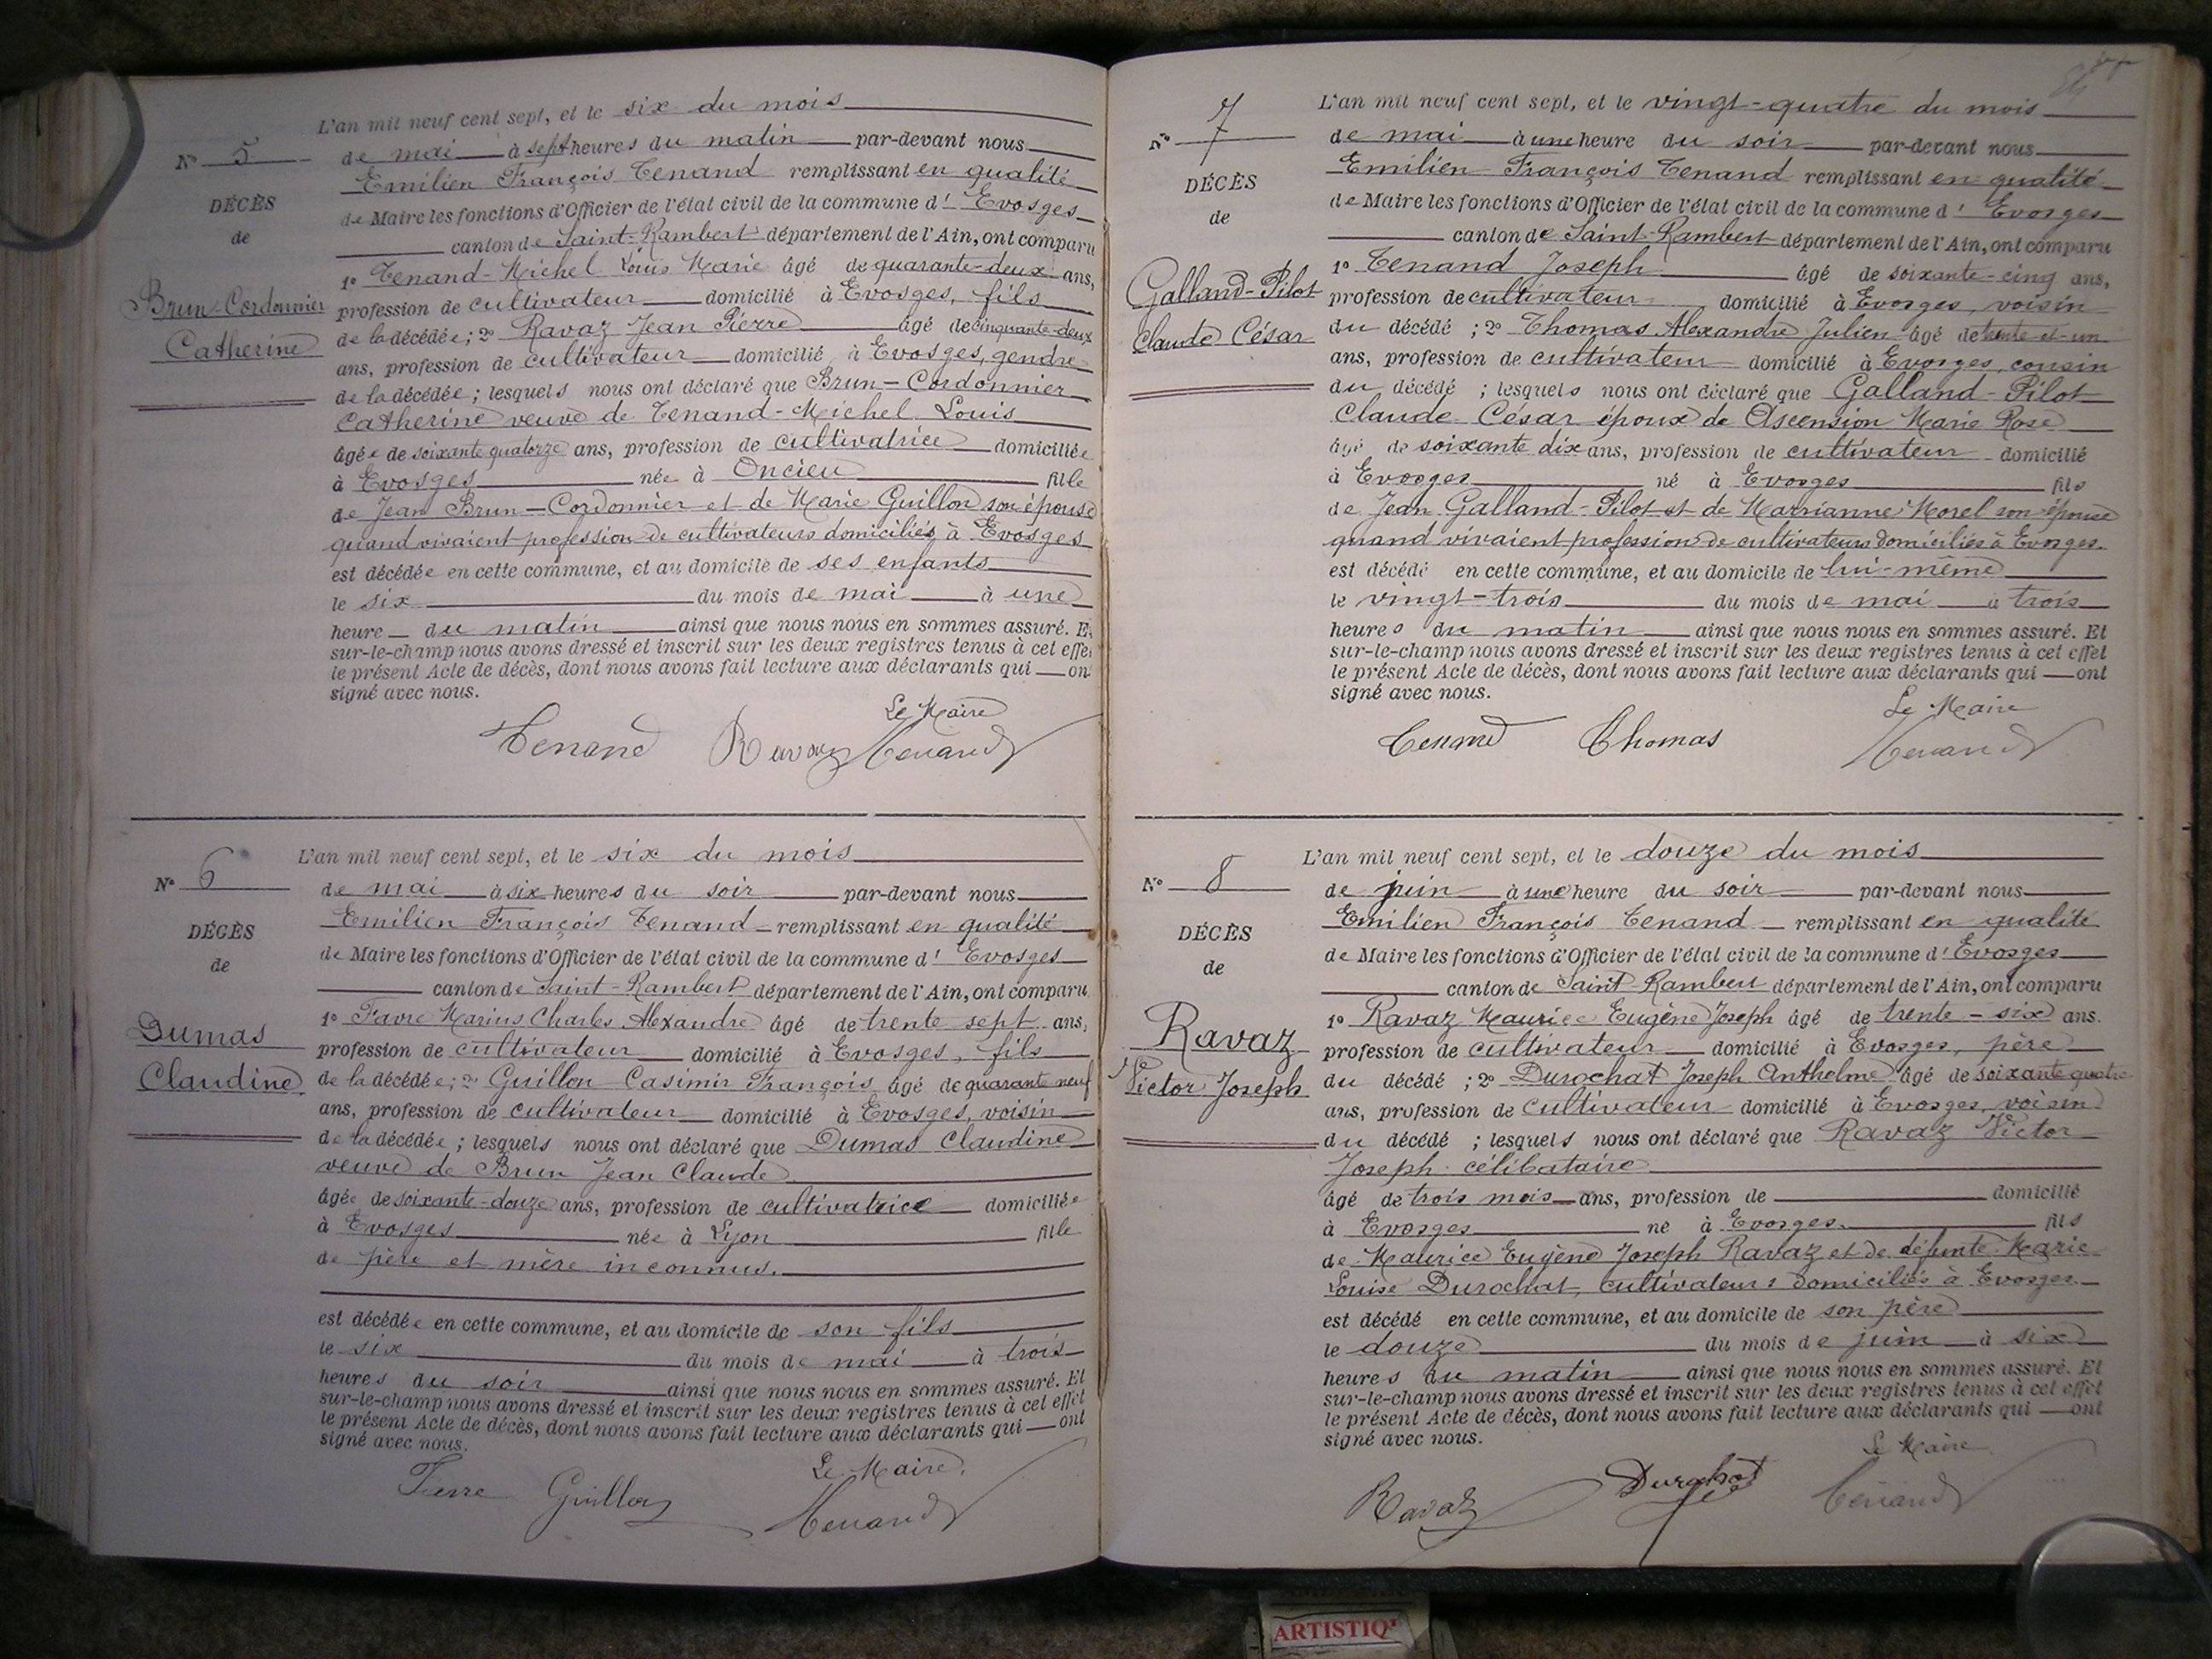 L'an mil neuf cent sept, et le six du mois
N° 5
de mai à sept heures du matin par-devant nous
Emilien François Tenand remplissant en qualité
DÉCÈS
de Maire les fonctions d'Officier de l'état civil de la commune d' Evosges
de
canton de Saint-Rambert département de l'Ain, ont comparu
1° Tenand-Michel Louis Marie âgé de quarante-deux ans,
Brun-Cordonnier
profession de cultivateur domicilié à Evosges, fils
Catherine
de la décédée; 2° Ravaz Jean Pierre âgé de cinquante-deux
ans, profession de cultivateur domicilié à Evosges, gendre
de la décédée; lesquels nous ont déclaré que Brun-Cordonnier
Catherine veuve de Tenand-Michel Louis
âgée de soixante quatorze ans, profession de cultivatrice domiciliée
à Evosges née à Oncieu fille
de Jean Brun-Cordonnier et de Marie Guillon son épouse
quand vivaient profession de cultivateurs domiciliés à Evosges
est décédée en cette commune, et au domicile de ses enfants
le six du mois de mai à une
heure du matin ainsi que nous nous en sommes assuré. E
sur-le-champ nous avons dressé et inscrit sur les deux registres tenus à cet effe
le présent Acte de décès, dont nous avons fait lecture aux déclarants qui on
signé avec nous.
Le Maire
Tenand Ravaz Tenand
L'an mil neuf cent sept, et le six du mois
N° 6
de mai à six heures du soir par-devant nous
Emilien François Tenand remplissant en qualité
DÉCÈS
de Maire les fonctions d'Officier de l'état civil de la commune d' Evosges
de
canton de Saint-Rambert département de l'Ain, ont comparu
1° Favre Marius Charles Alexandre âgé de trente sept ans,
Dumas
profession de cultivateur domicilié à Evosges, fils
Claudine
de la décédée; 2° Guillon Casimir François âgé de quarante neuf
ans, profession de cultivateur domicilié à Evosges, voisin
de la décédée; lesquels nous ont déclaré que Dumas Claudine
veuve de Brun Jean Claude
âgée de soixante-douze ans, profession de cultivatrice domiciliée
à Evosges née à Lyon fille
de père et mère inconnus.
est décédée en cette commune, et au domicile de son fils
le six du mois de mai à trois
heures du soir ainsi que nous nous en sommes assuré. Et
sur-le-champ nous avons dressé et inscrit sur les deux registres tenus à cet effet
le présent Acte de décès, dont nous avons fait lecture aux déclarants qui ont
signé avec nous.
Le Maire.
Guillon Tenand
L'an mil neuf cent sept, et le vingt-quatre du mois
N° 7
de mai à une heure du soir par-devant nous
Emilien François Tenand remplissant en qualité
DÉCÈS
de Maire les fonctions d'Officier de l'état civil de la commune d' Evosges
de
canton de Saint-Rambert département de l'Ain, ont comparu
1° Tenand Joseph âgé de soixante-cinq ans,
Galland-Pilot
profession de cultivateur domicilié à Evosges, voisin
Claude César
du décédé; 2° Thomas Alexandre Julien âgé de trente-et-un
ans, profession de cultivateur domicilié à Evosges, cousin
du décédé; lesquels nous ont déclaré que Galland-Pilot
Claude César époux de Ascension Marie Rose
âgé de soixante dix ans, profession de cultivateur domicilié
à Evosges né à Evosges fils
de Jean Galland-Pilot et de Marianne Morel son épouse
quand vivaient profession de cultivateurs domiciliés à Evosges.
est décédé en cette commune, et au domicile de lui-même
le vingt-trois du mois de mai à trois
heures du matin ainsi que nous nous en sommes assuré. Et
sur-le-champ nous avons dressé et inscrit sur les deux registres tenus à cet effet
le présent Acte de décès, dont nous avons fait lecture aux déclarants qui ont
signé avec nous.
Le Maire
Tenand Thomas Tenand
L'an mil neuf cent sept, et le douze du mois
N° 8
de juin à une heure du soir par-devant nous
Emilien François Tenand remplissant en qualité
DÉCÈS
de Maire les fonctions d'Officier de l'état civil de la commune d' Evosges
de
canton de Saint-Rambert département de l'Ain, ont comparu
1° Ravaz Maurice Eugène Joseph âgé de trente-six ans.
Ravaz
profession de cultivateur domicilié à Evosges, père
Victor Joseph
du décédé; 2° Durochat Joseph Anthelme âgé de soixante quatre
ans, profession de cultivateur domicilié à Evosges, voisin
du décédé; lesquels nous ont déclaré que Ravaz Victor
Joseph célibataire
âgé de trois mois ans, profession de domicilié
à Evosges né à Evosges. fils
de Maurice Eugène Joseph Ravaz et de défunte Marie
Louise Durochat, cultivateurs domiciliés à Evosges
est décédé en cette commune, et au domicile de son père
le douze du mois de juin à six
heures du matin ainsi que nous nous en sommes assuré. Et
sur-le-champ nous avons dressé et inscrit sur les deux registres tenus à cet effet
le présent Acte de décès, dont nous avons fait lecture aux déclarants qui ont
signé avec nous.
Le Maire
Ravaz Durochat Tenand
ARTISTIQ